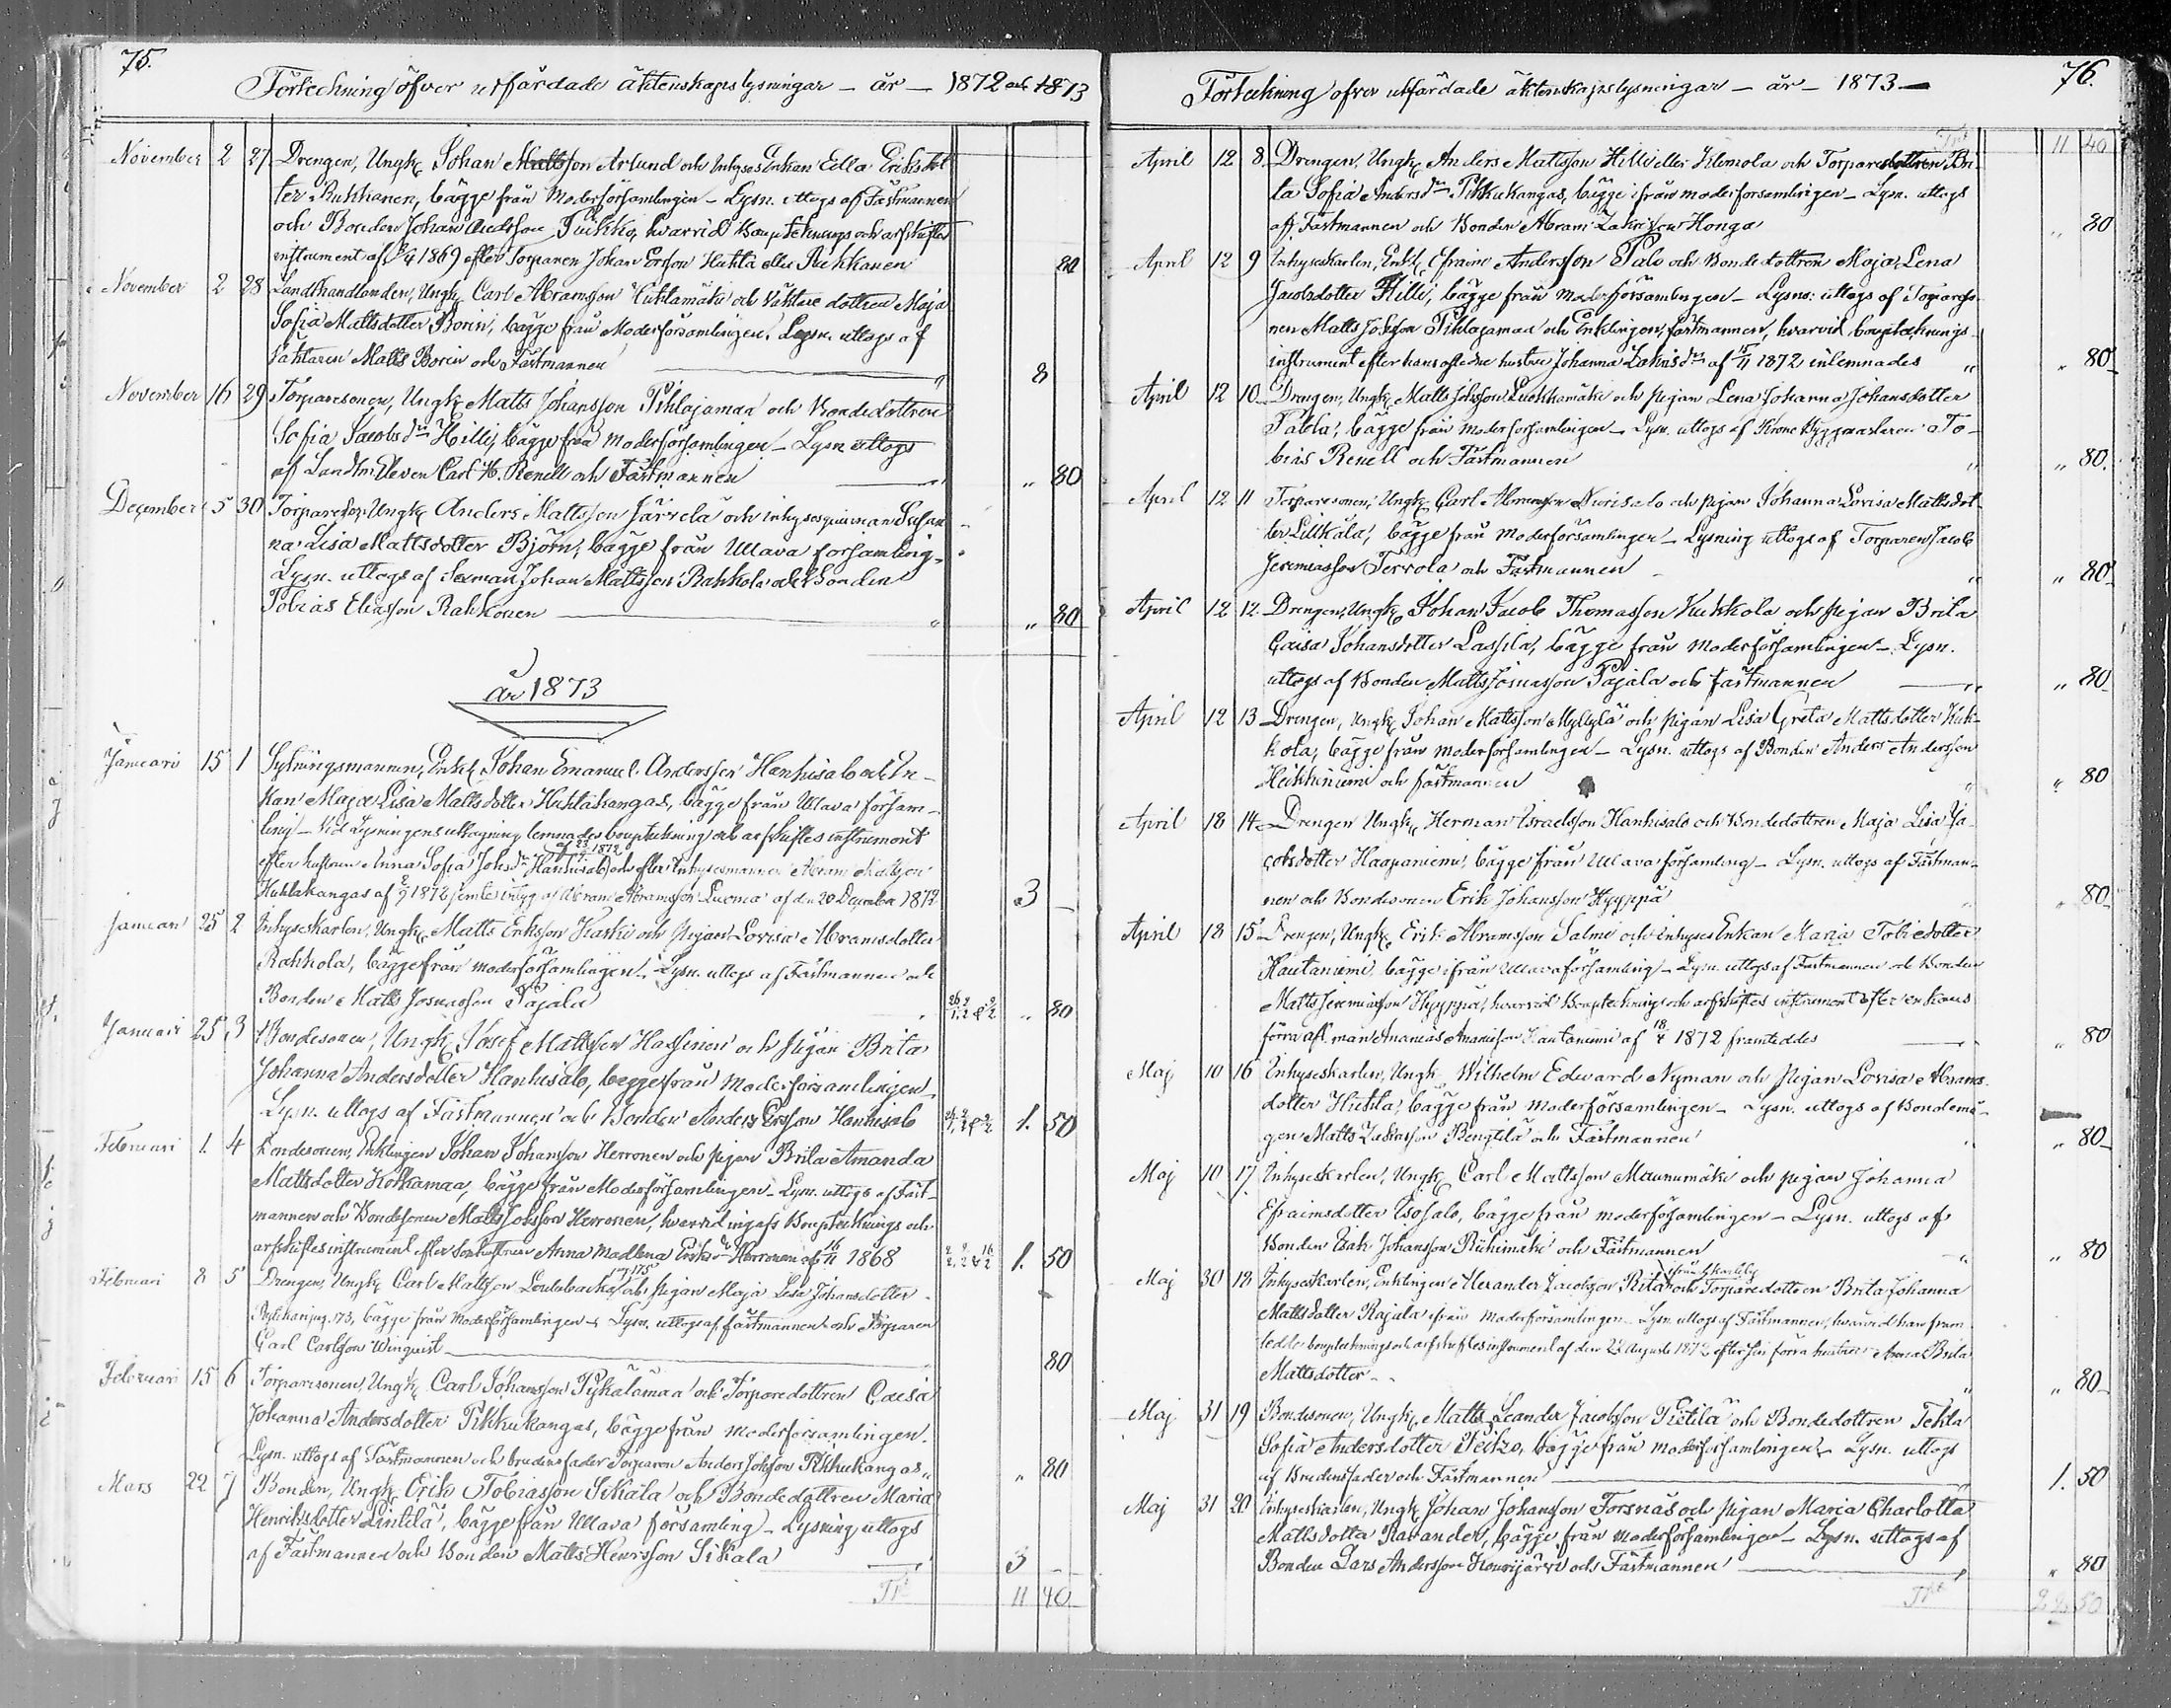 75.
Förteckning öfver utfärdade äktenskapslysningar – år – 1872 och 1873
November 2 27 Drengen, Ungk. Johan Mattsson Arlund och Inhyses Enkan Eella Eriksdot-
ter Ruhkanen, bägge från Moderförsamlingen – Lysn. uttogs af Fästmannen
och Bonden Johan Andersson Puikko, hvarvid Bouptecknings och arfskiftes
instrument af 1869 efter Torparen Johan Ersson Huhta eller Ruhkanen 80
November 2 28 Landthandlanden, Ungk. Carl Abramsson Huhtamäki och Väktare dottren Maja
Sofia Mattsdotter Borin, bägge från Moderförsamlingen. Lysn. uttogs af
Väktaren Matts Borin och Fästmannen 8
November 16 29 Torparesonen, Ungk. Matts Johansson Pihlajamaa och Bondedottren
Sofia Jacobsdr Hilli, bägge från moderförsamlingen – Lysn uttogs
af Landtm. Eleven Carl H. Renell och Fästmannen „ 80
December 5 30 Torpareson Ungk. Anders Mattsson Järvelä och inhysesqvinnan Susan-
na Lisa Mattsdotter Björn, bägge från Ullava församling.
Lysn. uttogs af Sexman Johan Mattsson Rahkola och Bonden
Tobias Eliasson Rahkonen „ 80
år 1873
Januari 15 1 Sytningsmannen, Enkl. Johan Emanuel Andersson Hanhisalo och En-
kan Maja Lisa Mattsdotter Huhtakangas, bägge från Ullava försam-
ling – Vid Lysningens uttagning lemnades bouptecknings och arfskiftes instrument
af 23 1872
efter hustrun Anna Sofia Johsdr Hanhisalo och efter Inhysesmannen Abram Mattsson
Huhtakangas af 1872 jemte intyg af Abram Abramsson Luoma af den 20 December 1872 3 –
Januari 25 2 Inhyseskarlen, Ungk. Matts Eriksson Kaski och Pigan Lovisa Abramsdotter
Rahkola, bägge från moderförsamlingen. Lysn. uttogs af Fästmannen och
Bonden Matts Josuasson Pajala „ 80
Januari 25 3 Bondesonen, Ungk. Josef Mattsson Hassinen och Pigan Brita
Johanna Andersdotter Hanhisalo, bägge från moderförsamlingen
Lysn. uttogs af Fästmannen och Bonden Anders Ersson Hanhisalo 1. 50
Februari 1. 4 Bondesonen, Enklingen Johan Johansson Herronen och pigan Brita Amanda
Mattsdotter Kotkamaa, bägge från Moderförsamlingen – Lysn. uttogs af Fäst-
mannen och Bondesonen Matts Johsson Herronen, hvarvid ingafs Bouptecknings och
arfskiftes instrument efter hustrun Anna Madlena Eriksdr Herronen af 16/11 1868 1. 50
Februari 8 5 Drengen, Ungk. Carl Mattsson pag. 175 och pigan Maja Lisa Johansdotter
pag. 173, bägge från Moderförsamlingen – Lysn. uttogs af fästmannen och Torparen
Carl Carlsson Winquist 80
Februari 15 6 Torparesonen, Ungk. Carl Johansson Pyhälämaa och Torparedottren Caisa
Johanna Andersdotter Pihkukangas, bägge från moderförsamlingen.
Lysn. uttogs af Fästmannen och brudens fader Torparen Anders Johsson Pihkukangas „ 80
Mars 22 7 Bonden, Ungk. Erik Tobiasson Sikala och Bondedottren Maria
Henriksdotter Lintilä, bägge från Ullava församling – Lysning uttogs
af Fästmannen och Bonden Matts Henriksson Sikala 3 –
Trt 11 40
76.
Förteckning öfver utfärdade äktenskapslysningar – år – 1873 –
Trt 11 40
April 12 8 Drengen, Ungk. Anders Mattsson Hilli eller Klemola och Torparedottren Bri-
ta Sofia Andersdr Pihkukangas, bägge ifrån moderförsamlingen – Lysn. uttogs
af Fästmannen och Bonden Abram Zakrisson Honga „ 80
April 12 9 Inhyseskarlen, Enkl. Efraim Andersson Palo och Bondedottren Maja Lena
Jacobsdotter Hilli, bägge från moderförsamlingen – Lysn: uttogs af Torpareso-
nen Matts Johsson Pihlajamaa och Enklingen, fästmannen, hvarvid bouptecknings-
instrument efter hans aflidne hustru Johanna Zakrisdr af 15/11 1872 inlemnades „ 80
April 12 10 Drengen, Ungk. Matts Johsson Luokkamäki och pigan Lena Johanna Johansdotter
Palola, bägge från moderförsamlingen – Lysn. uttogs af Krono Byggmästaren To-
bias Renell och Fästmannen „ 80.
April 12 11 Torparesonen, Ungk. Carl Abramsson Nurisalo och pigan Johanna Lovisa Mattsdot-
ter Lillkåla, bägge från moderförsamlingen – Lysning uttogs af Torparen Jacob
Jeremiasson Tervola och Fästmannen „ 80
April 12 12. Drengen, Ungk. Johan Jacob Thomasson Kuhkola och pigan Brita
Caisa Johansdotter Lassila, bägge från moderförsamlingen – Lysn.
uttogs af Bonden Matts Josuasson Pajala och fästmannen „ 80
April 12 13 Drengen, Ungk. Johan Mattsson Myllylä och pigan Lisa Greta Mattsdotter Kuh-
kola, bägge från moderförsamlingen – Lysn. uttogs af Bonden Anders Andersson
Heikkiniemi och fästmannen „ 80
April 18 14 Drengen Ungk. Herman Israelsson Hanhisalo och Bondedottren Maja Lisa Ja-
cobsdotter Haapaniemi, bägge från Ullava församling – Lysn. uttogs af Fästman-
nen och Bondesonen Erik Johansson Hyyppä „ 80
April 18 15 Drengen, Ungk. Erik Abramsson Salmi och Inhyses Enkan Maria Tobiedotter
Hautaniemi bägge ifrån Ullava församling – Lysn. uttogs af Fästmannen och Bonden
Matts Jeremiasson Hyyppä, hvarvid Bouptecknings och arfskiftes instrument efter enkans
förra afl. man Ananias Ananiasson Hautaniemi af 18/4 1872 framteddes „ 80
Maj 10 16 Inhyseskarlen, Ungk. Wilhelm Edward Nyman och Pigan Lovisa Abrams-
dotter Hietila, bägge från moderförsamlingen – Lysn. uttogs af Bondemå-
gen Matts Zakrisson Bengtilä och Fästmannen „ 80
Maj 10 17 Inhyseskarlen, Ungk. Carl Mattsson Maunumäki och pigan Johanna
Efraimsdotter Isosalo, bägge från moderförsamlingen – Lysn. uttogs af
Bonden Isak Johansson Riihimäki och Fästmannen „ 80
Maj 30 18 Inhyseskarlen, Enklingen Alexander Jacobsson Rita ifrån Karleby och Torparedottren Brita Johanna
Mattsdotter Rajala ifrån moderförsamlingen – Lysn uttogs af Fästmannen, hvarvid han fram-
tedde bouptecknings och arfskiftes instrument af den 23 Augusti 1872 efter sin förra hustru Anna Brita
Mattsdotter „ 80
Maj 31 19 Bondesonen, Ungk. Matts Leander Jacobsson Pietilä och Bondedottren Tekla
Sofia Andersdotter Peitzo, bägge från moderförsamlingen – Lysn. uttogs
af Brudens fader och Fästmannen 1. 50
Maj 31 20 Inhyseskarlen, Ungk. Johan Johansson Forsnäs och Pigan Maria Charlotta
Mattsdotter Ravander, bägge från moderförsamlingen – Lysn. uttogs af
Bonden Lars Andersson Houvijärvi och Fästmannen „ 80
Trt 22 50